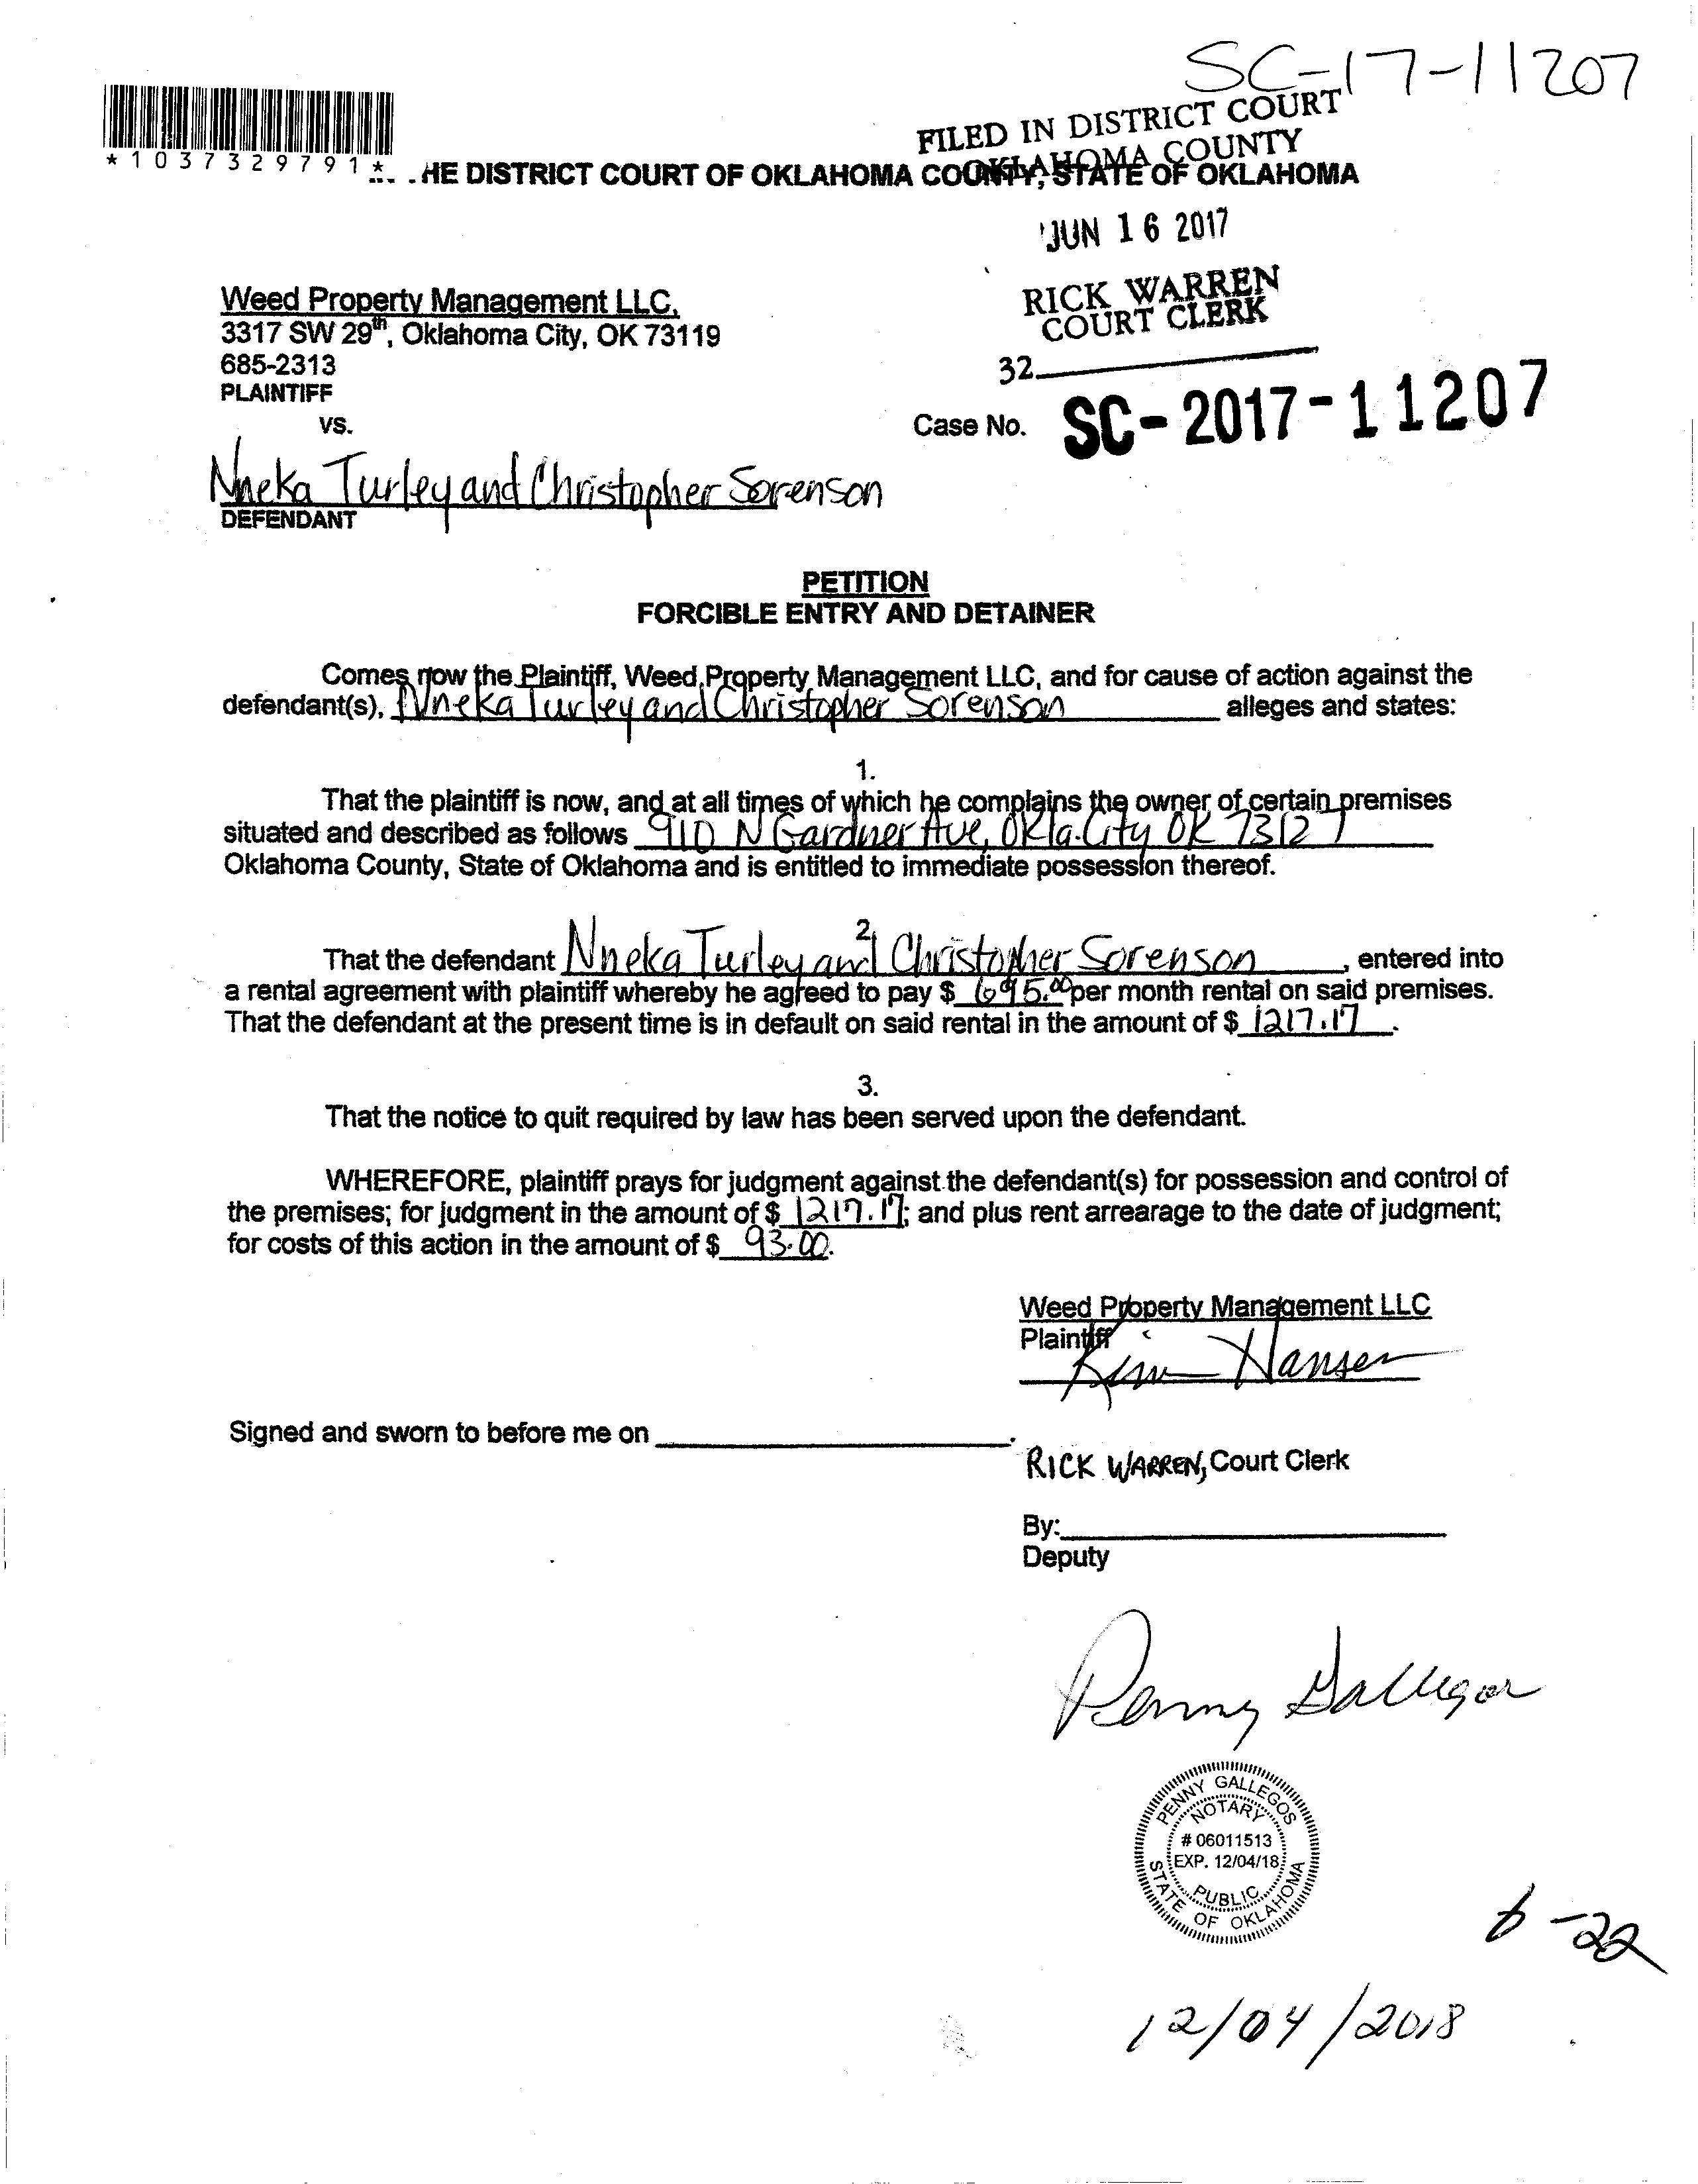 SC-17-11207
FILED IN DISTRICT COURT
OKLAHOMA COUNTY
*1037329791*
HE DISTRICT COURT OF OKLAHOMA COUNTY, STATE OF OKLAHOMA
JUN 16 2017
RICK WARREN
COURT CLERK
32
Weed Property Management LLC,
3317 SW 29th, Oklahoma City, OK 73119
685-2313
PLAINTIFF
VS.
Case No. SC-2017-11207
Nneka Turley and Christopher Sorenson
DEFENDANT
PETITION
FORCIBLE ENTRY AND DETAINER
Comes now the Plaintiff, Weed Property Management LLC, and for cause of action against the
defendant(s), Nneka Turley and Christopher Sorenson alleges and states:
1.
That the plaintiff is now, and at all times of which he complains the owner of certain premises
situated and described as follows 910 N Gardner Ave, Okla. City OK 73127
Oklahoma County, State of Oklahoma and is entitled to immediate possession thereof.
2.
That the defendant Nneka Turley and Christopher Sorenson, entered into
a rental agreement with plaintiff whereby he agreed to pay $ 695.00 per month rental on said premises.
That the defendant at the present time is in default on said rental in the amount of $ 1217.17.
3.
That the notice to quit required by law has been served upon the defendant.
WHEREFORE, plaintiff prays for judgment against the defendant(s) for possession and control of
the premises; for judgment in the amount of $ 1217.17; and plus rent arrearage to the date of judgment;
for costs of this action in the amount of $ 93.00.
Weed Property Management LLC
Plaintiff
Kim Hansen
Signed and sworn to before me on
RICK WARREN, Court Clerk
By:
Deputy
Penny Gallegos
PENNY GALLEGOS
NOTARY
# 06011513
EXP. 12/04/18
PUBLIC
STATE OF OKLAHOMA
6-22
12/04/2018